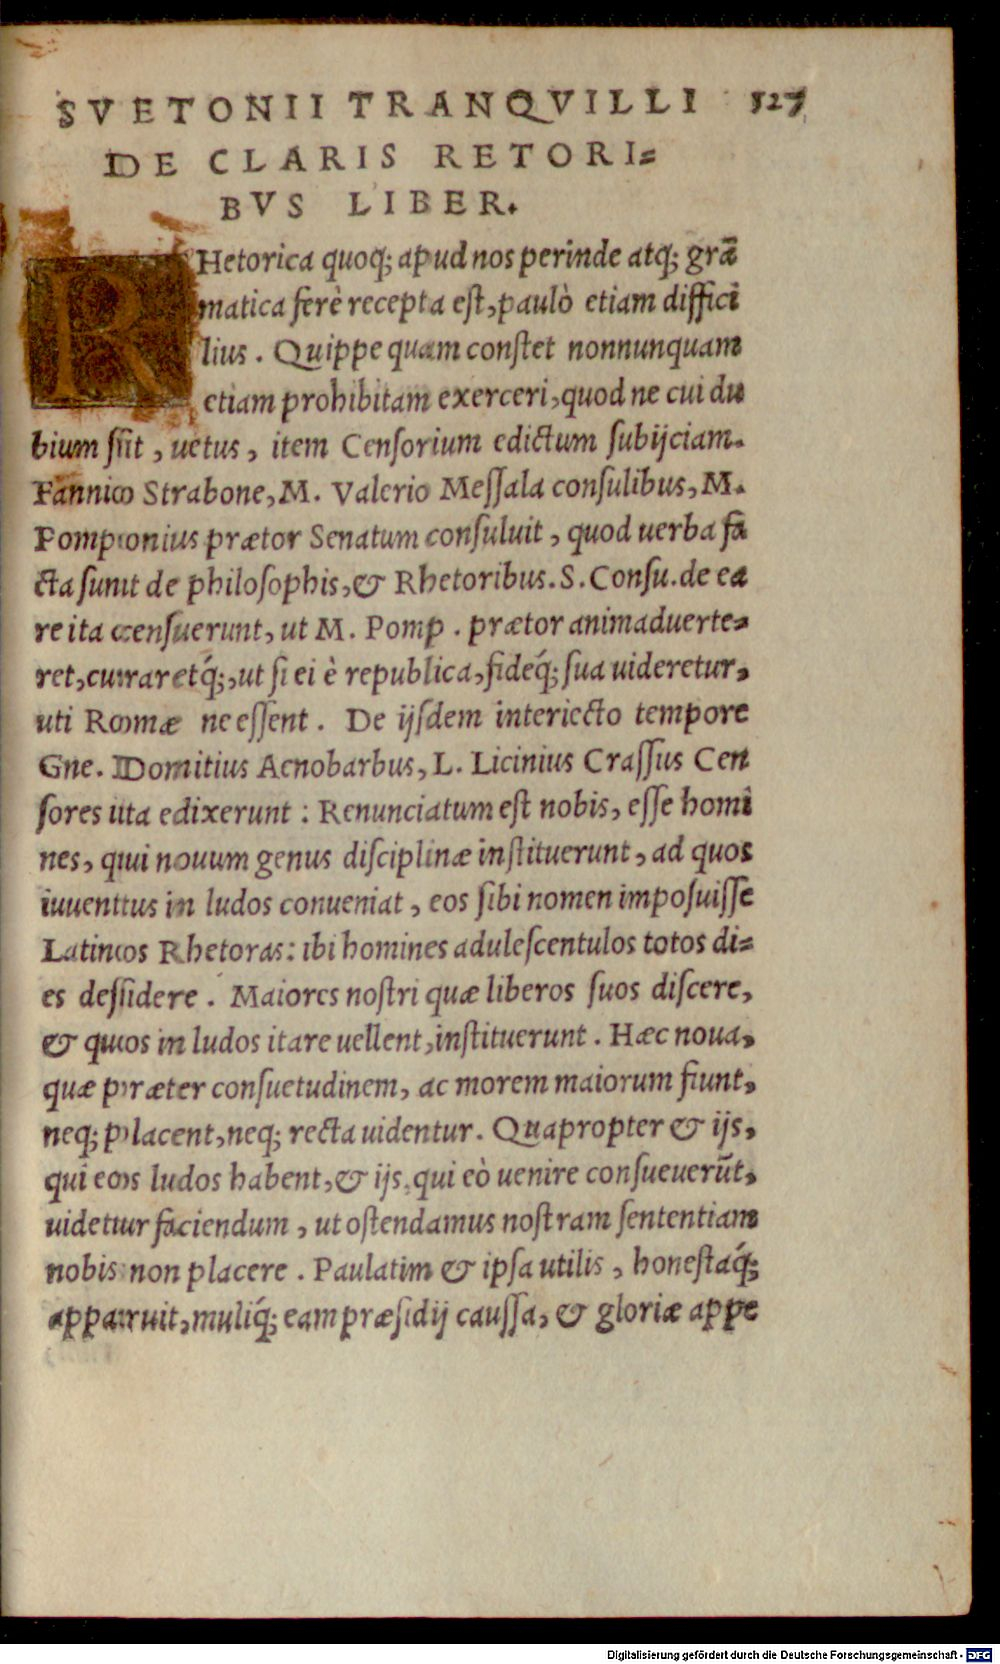 SVETONII TRANQVILLI 527
DE CLARIS RETORI=
BVS LIBER.
RHetorica quoq; apud nos perinde atq; grā
matica ferè recepta est, paulò etiam diffici
lius. Quippe quam constet nonnunquam
etiam prohibitam exerceri, quod ne cui du
bium sit, uetus, item Censorium edictum subijciam.
Fannio Strabone, M. Valerio Messala consulibus, M.
Pomponius prætor Senatum consuluit, quod uerba fa
cta sunt de philosophis, & Rhetoribus. S. Consu. de ea
re ita censuerunt, ut M. Pomp. prætor animaduerte=
ret, curaretq́;, ut si ei è republica, fideq́; sua uideretur,
uti Romæ ne essent. De ijsdem interiecto tempore
Gne. Domitius Aenobarbus, L. Licinius Crassus Cen
sores ita edixerunt: Renunciatum est nobis, esse homi
nes, qui nouum genus disciplinæ instituerunt, ad quos
iuuentus in ludos conueniat, eos sibi nomen imposuisse
Latinos Rhetoras: ibi homines adulescentulos totos di=
es desidere. Maiores nostri quæ liberos suos discere,
& quos in ludos itare uellent, instituerunt. Hæc noua,
quæ præter consuetudinem, ac morem maiorum fiunt,
neq; placent, neq; recta uidentur. Quapropter & ijs,
qui eos ludos habent, & ijs, qui eò uenire consueuerūt,
uidetur faciendum, ut ostendamus nostram sententiam
nobis non placere. Paulatim & ipsa utilis, honestaq́;
apparuit, muliq́; eam præsidij caussa, & gloriæ appe
Digitalisierung gefördert durch die Deutsche Forschungsgemeinschaft - DFG